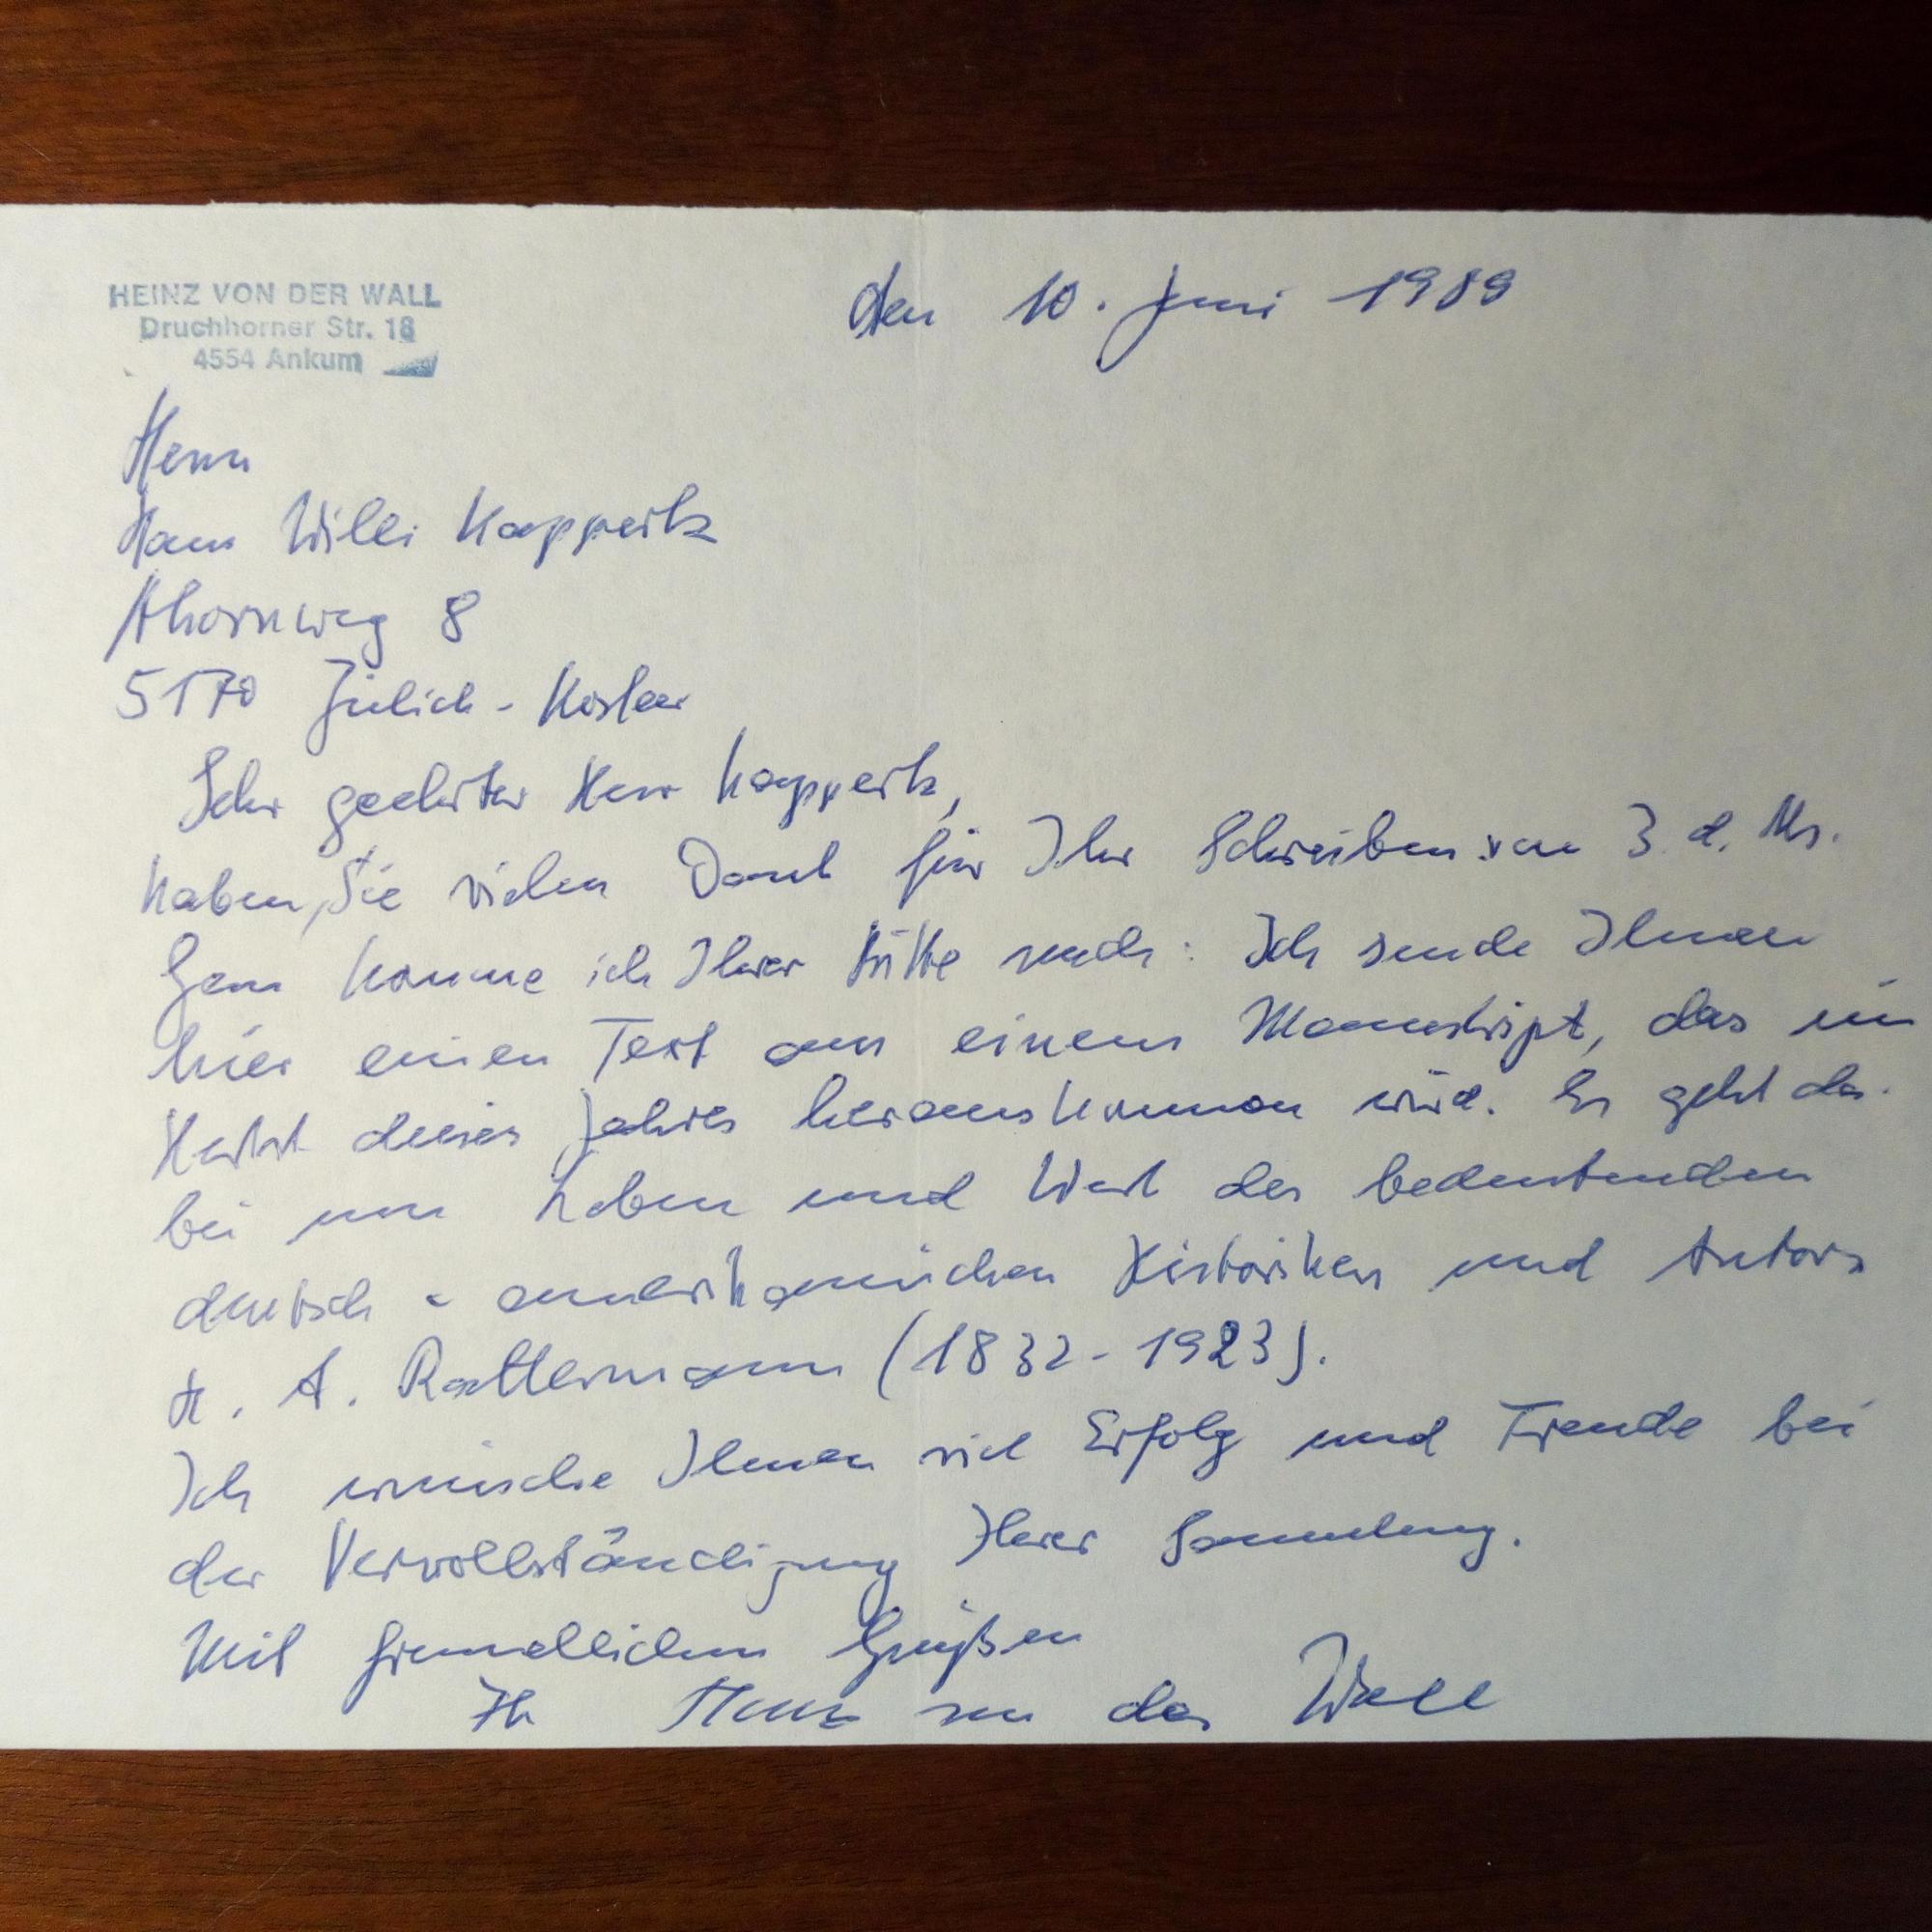 HEINZ VON DER WALL
Druchhorner Str. 18
4554 Ankum
den 10. Juni 1989
Herrn
Hans Willi Kappertz
Ahornweg 8
5170 Jülich - Koslar
Sehr geehrter Herr Kappertz,
haben Sie vielen Dank für Ihr Schreiben vom 3. d. Ms.
Gern komme ich Ihrer Bitte nach: Ich sende Ihnen
hier einen Text aus einem Manuskript, das im
Herbst dieses Jahres herauskommen wird. Es geht da-
bei um Leben und Werk des bedeutenden
deutsch - amerikanischen Historikers und Autors
H. A. Rattermann (1832 - 1923).
Ich wünsche Ihnen viel Erfolg und Freude bei
der Vervollständigung Ihrer Sammlung.
Mit freundlichen Grüßen
Ihr Heinz von der Wall